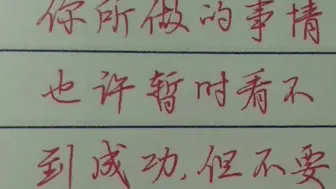 你所做的事情
也许暂时看不
到成功,但不要